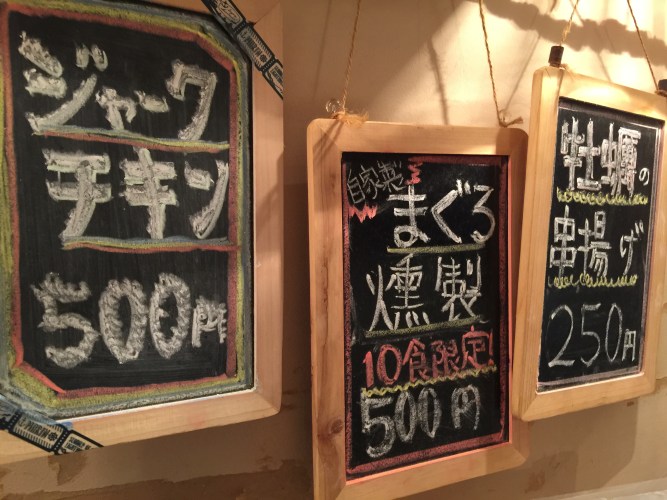 ジャーク
チキン
500円
自家製
まぐろ
燻製
10食限定!
500円
牡蠣の
串揚げ
250円